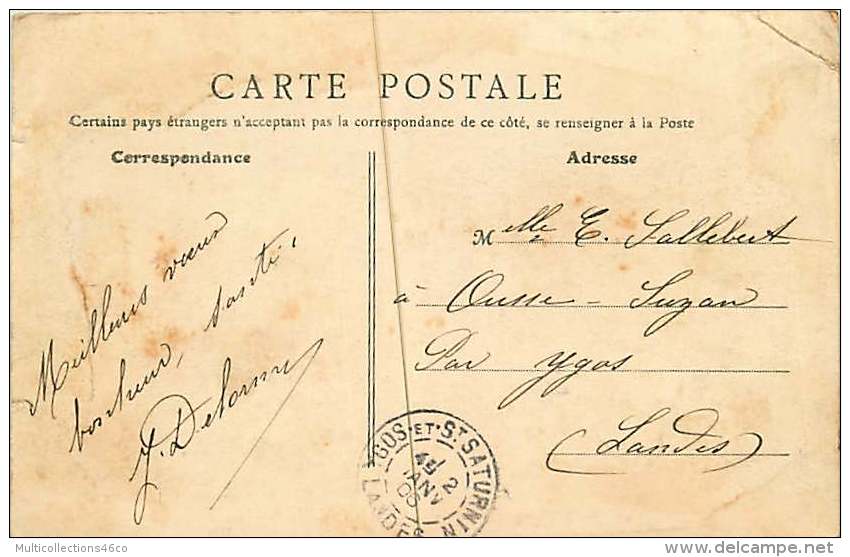 CARTE POSTALE
Certains pays étrangers n'acceptant pas la correspondance de ce côté, se renseigner à la Poste
Correspondance
Adresse
Meilleurs vœux
bonheur, santé,
J. Delorme
Melle E. Sallebert
à Ousse-Suzan
Par Ygos
(Landes)
YGOS-ET-ST SATURNIN
2
JANV
LANDES
Multicollections46co
delcampe.net